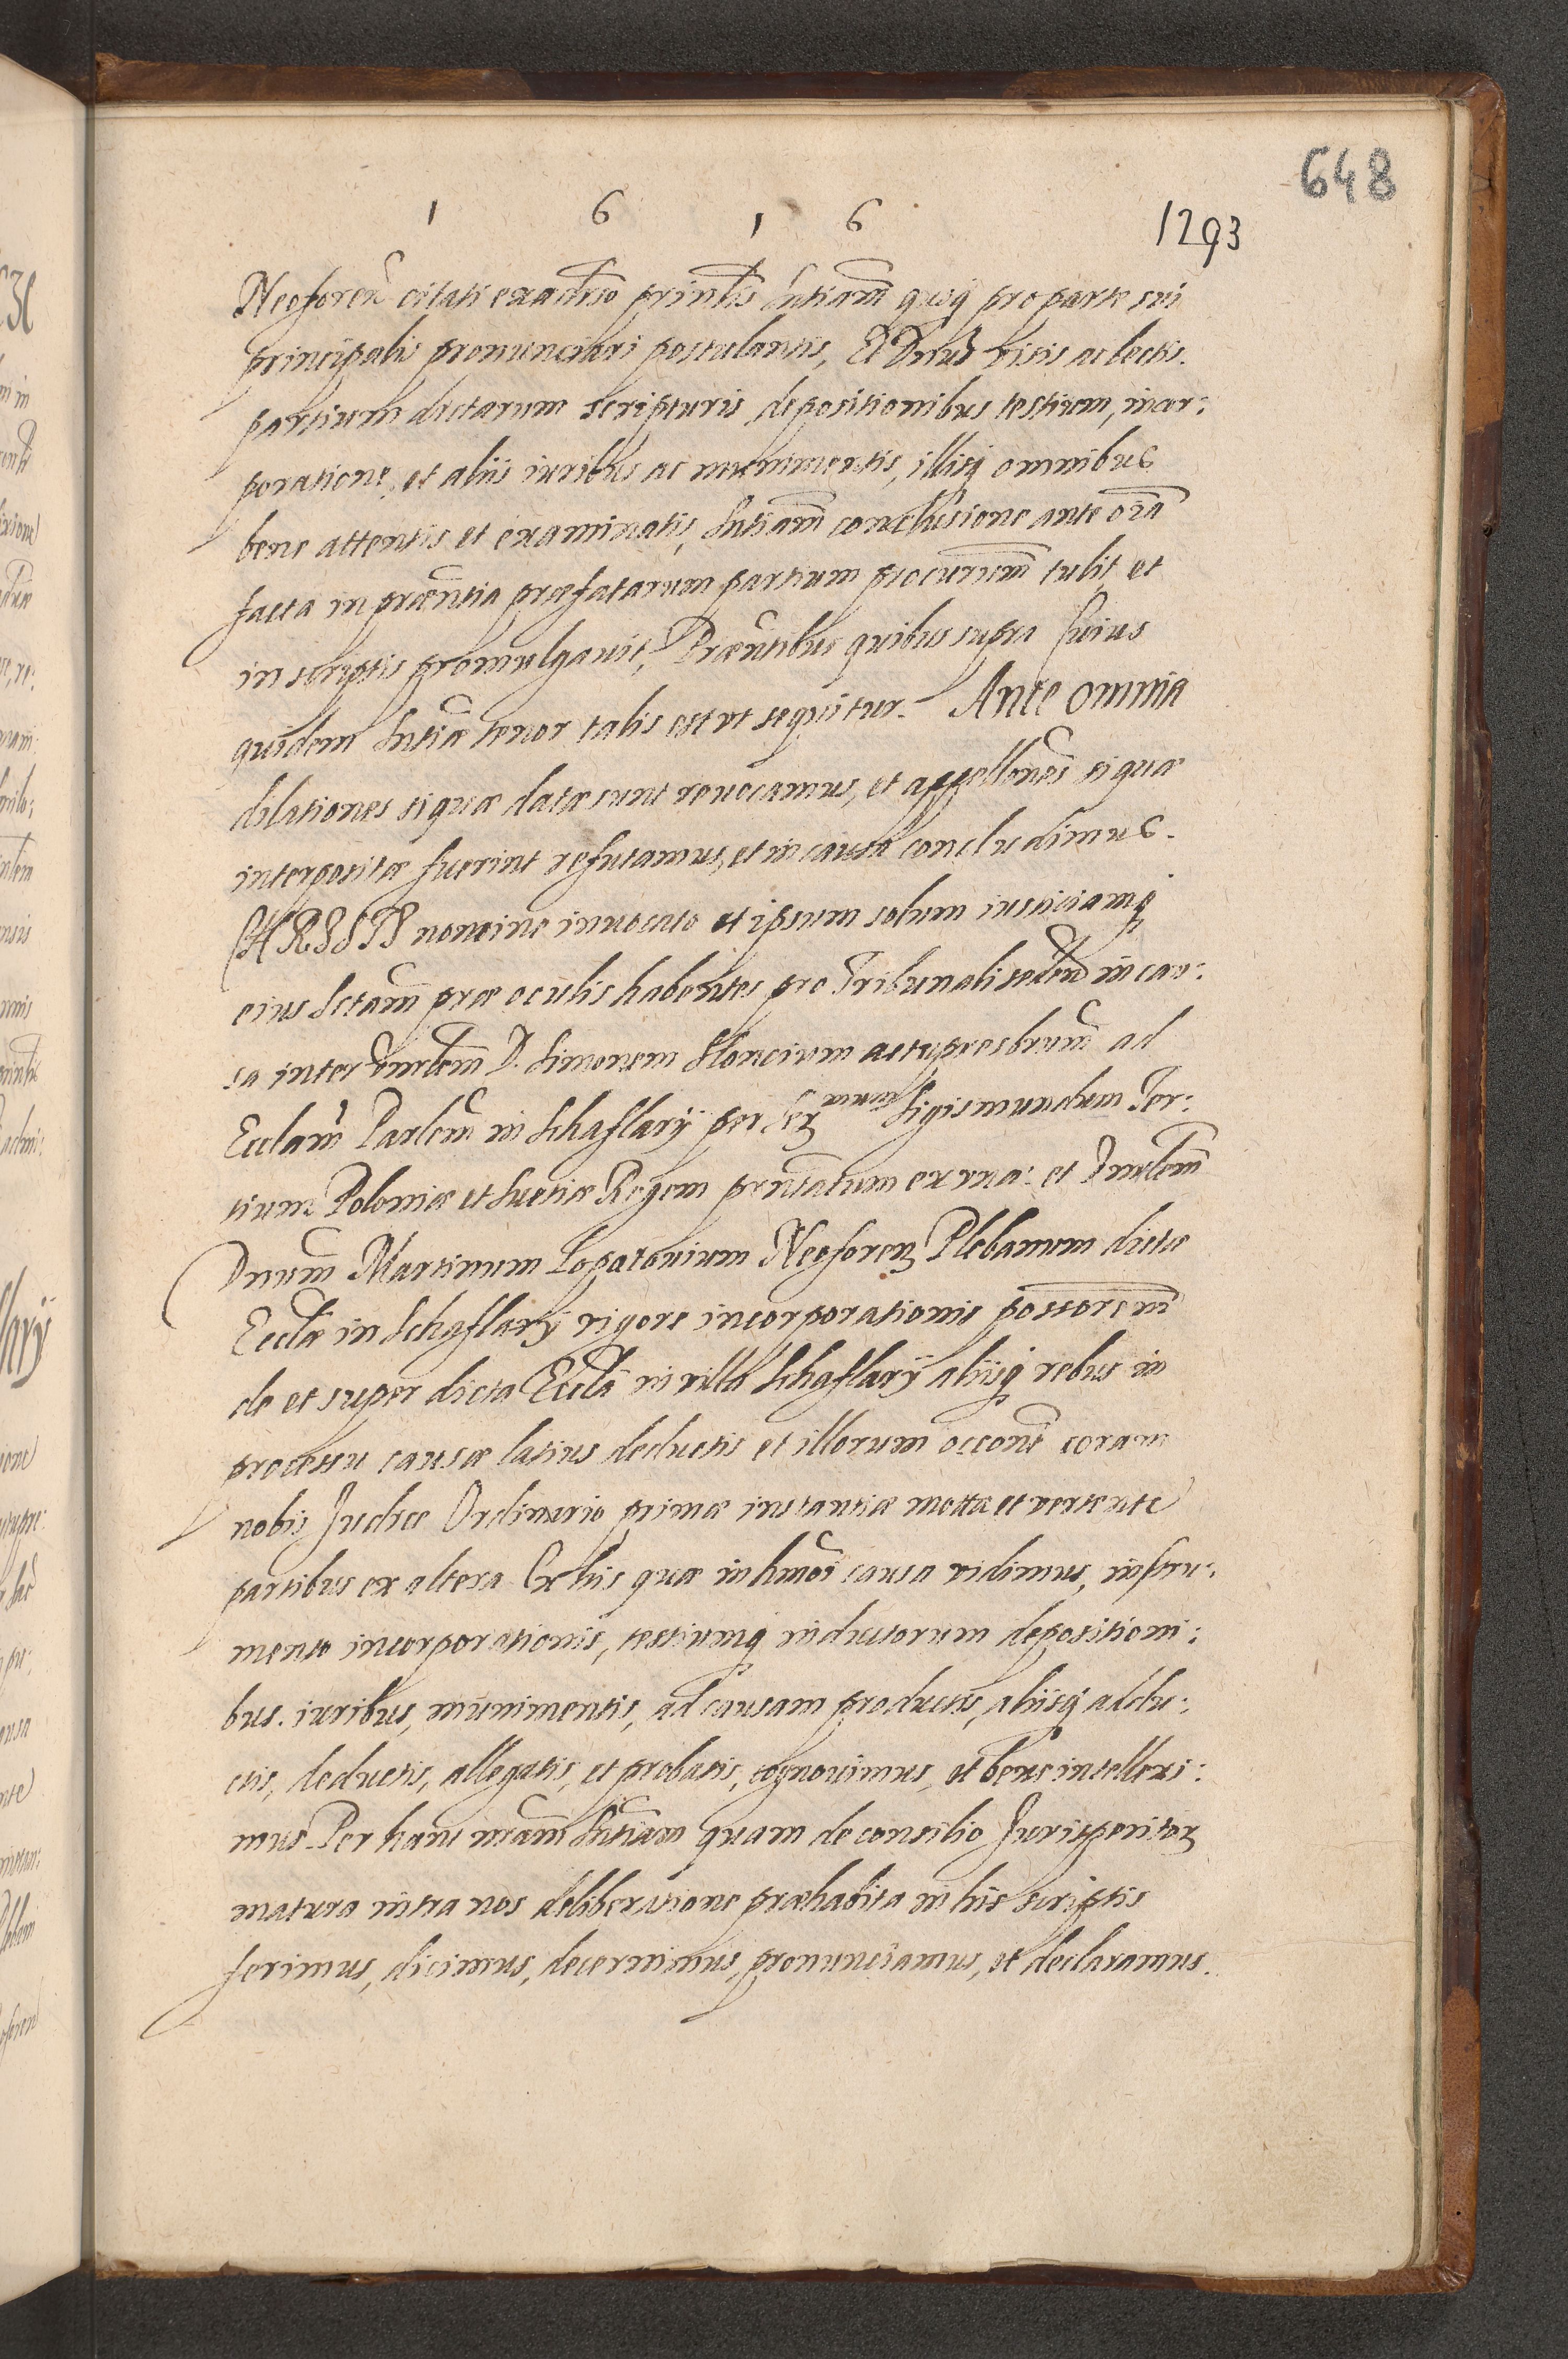 648
1 6 1 6
1293
Neoforeñ citati ex adũso prinlis Sntiam̃ quoq̃ pro parte sui
principalis pronunciari postulantis, Et Dnus visis ac lectis
partium dictarum scripturis depositionibus testium, incor:
poratione, et aliis iuribus ac munimentis, illisq̃ omnibus
bene attentis et examinatis, Sntiam̃ conclusione ante oĩa
facta in præñtia præfatarum partium procurum̃ tulit et
in scriptis promulgauit, Præñtibus quibus supra Cuius
quidem Sntiæ tenor talis est ut sequitur. Ante omnia
dilationes si quæ datæ sunt reuocamus, et appellones̃ si quæ
interpositæ fuerint refutamus, et in causa concludimus.
CHRISTI nomine inuocato et ipsum solum iusticiamq̃
eius Sctam̃ præ oculis habentes pro Tribunali seden̄ in cau:
sa inter Vnrlem̃ D. Simonem Sloncium actu presbrum̃ ad
Ecclam̃ Parlem̃ in Schaflary per Ser imum Sigismundum Ter:
tium Poloniæ et Suetiæ Regem prñtatum ex vna: et Vnrlem̃
Dnum̃ Martinum Lopatouium Neoforen̄ Plebanum dictæ
Ecclæ in Schaflary vigore incorporationis possorem̃
de et super dicta Eccla in villa Schaflary aliisq̃ rebus in
processu causæ latius deductis et illorum occone coram
nobis Judice Ordinario primæ instantiæ motta et vertente
partibus ex altera Ex his quæ in hmõi causa vidimus, instru:
mento incorporationis, testiumq̃ inductorum depositioni:
bus. iuribus, munimentis, ad causam productis, aliisq̃ addu:
ctis, deductis, allegatis, et probatis, cognouimus, et bene intellexi:
mus. Per hanc nram̃ Sntiam̃ quam de consilio Jurisperitor̃
matura intra nos deliberatione præhabita in his scriptis
ferimus, dicimus, decernimus, pronunciamus, et declaramus.